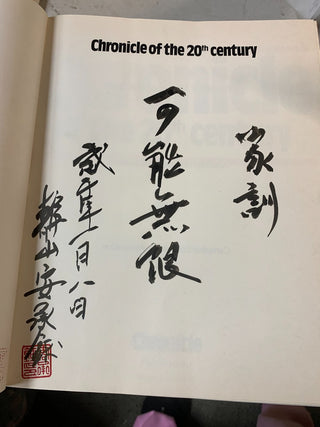 Chronicle of the 20th century
家訓
可能無限
年一月八日
韓山安承